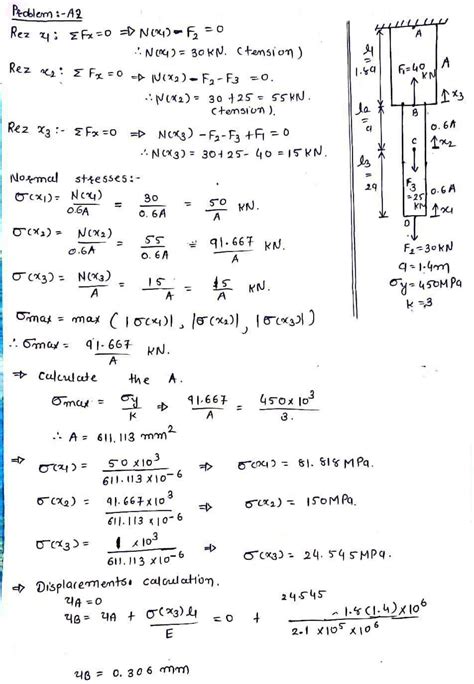 Problem:- A2
Rez x1: ΣFx=0 ⇒ N(x1)-F2 = 0
∴N(x1) = 30KN. (tension)
Rez x2: ΣFx=0 ⇒ N(x2)-F2-F3 = 0.
∴N(x2) = 30+25 = 55KN.
(tension).
Rez x3:- ΣFx=0 ⇒ N(x3)-F2-F3+F1=0
∴N(x3) = 30+25-40 = 15 KN.
Normal stresses:-
σ(x1) = N(x1)/0.6A = 30/0.6A = 50/A KN.
σ(x2) = N(x2)/0.6A = 55/0.6A = 91.667/A KN.
σ(x3) = N(x3)/A = 15/A = 15/A KN.
σmax = max (|σ(x1)|, |σ(x2)|, |σ(x3)|)
∴ σmax = 91.667/A KN.
⇒ Calculate the A.
σmax = σy/K ⇒ 91.667/A = 450×10^3/3.
∴ A = 611.113 mm^2
⇒ σ(x1) = 50×10^3/611.113×10^-6 ⇒ σ(x1) = 81.818 MPa.
σ(x2) = 91.667×10^3/611.113×10^-6 ⇒ σ(x2) = 150MPa.
σ(x3) = ×10^3/611.113×10^-6 ⇒ σ(x3) = 24.545MPa.
⇒ Displacements calculation.
uA=0
uB = uA + σ(x3)l1/E = 0 + 24.545 1.8(1.4)×10^6/2.1×10^5×10^6
uB = 0.306 mm
A
l1
=
1.8a
F1=40
KN
A
↑x3
B
l2
=
a
0.6A
↑x2
C
l3
=
2a
F3
=25
KN
0.6A
↑x1
D
F2=30KN
a=1.4m
σy=450MPa
K=3